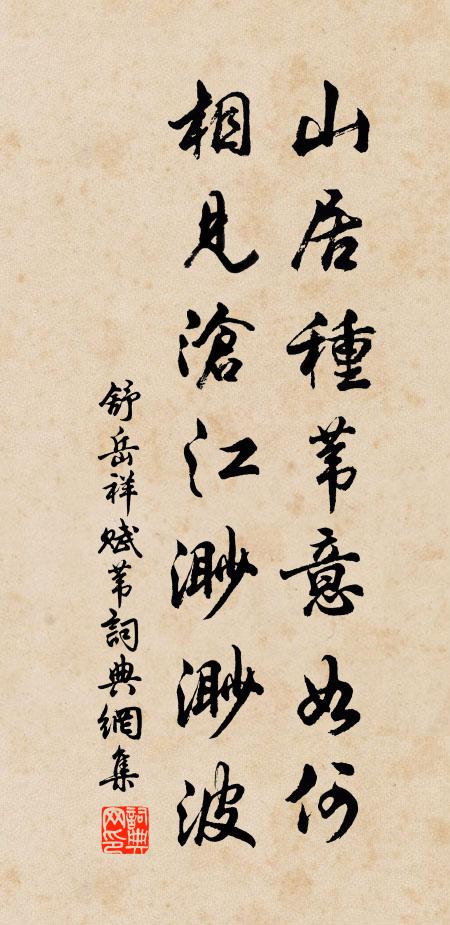 山居種葦意如何
相見滄江渺渺波
舒岳祥賦葦詞典網集
詞典网印